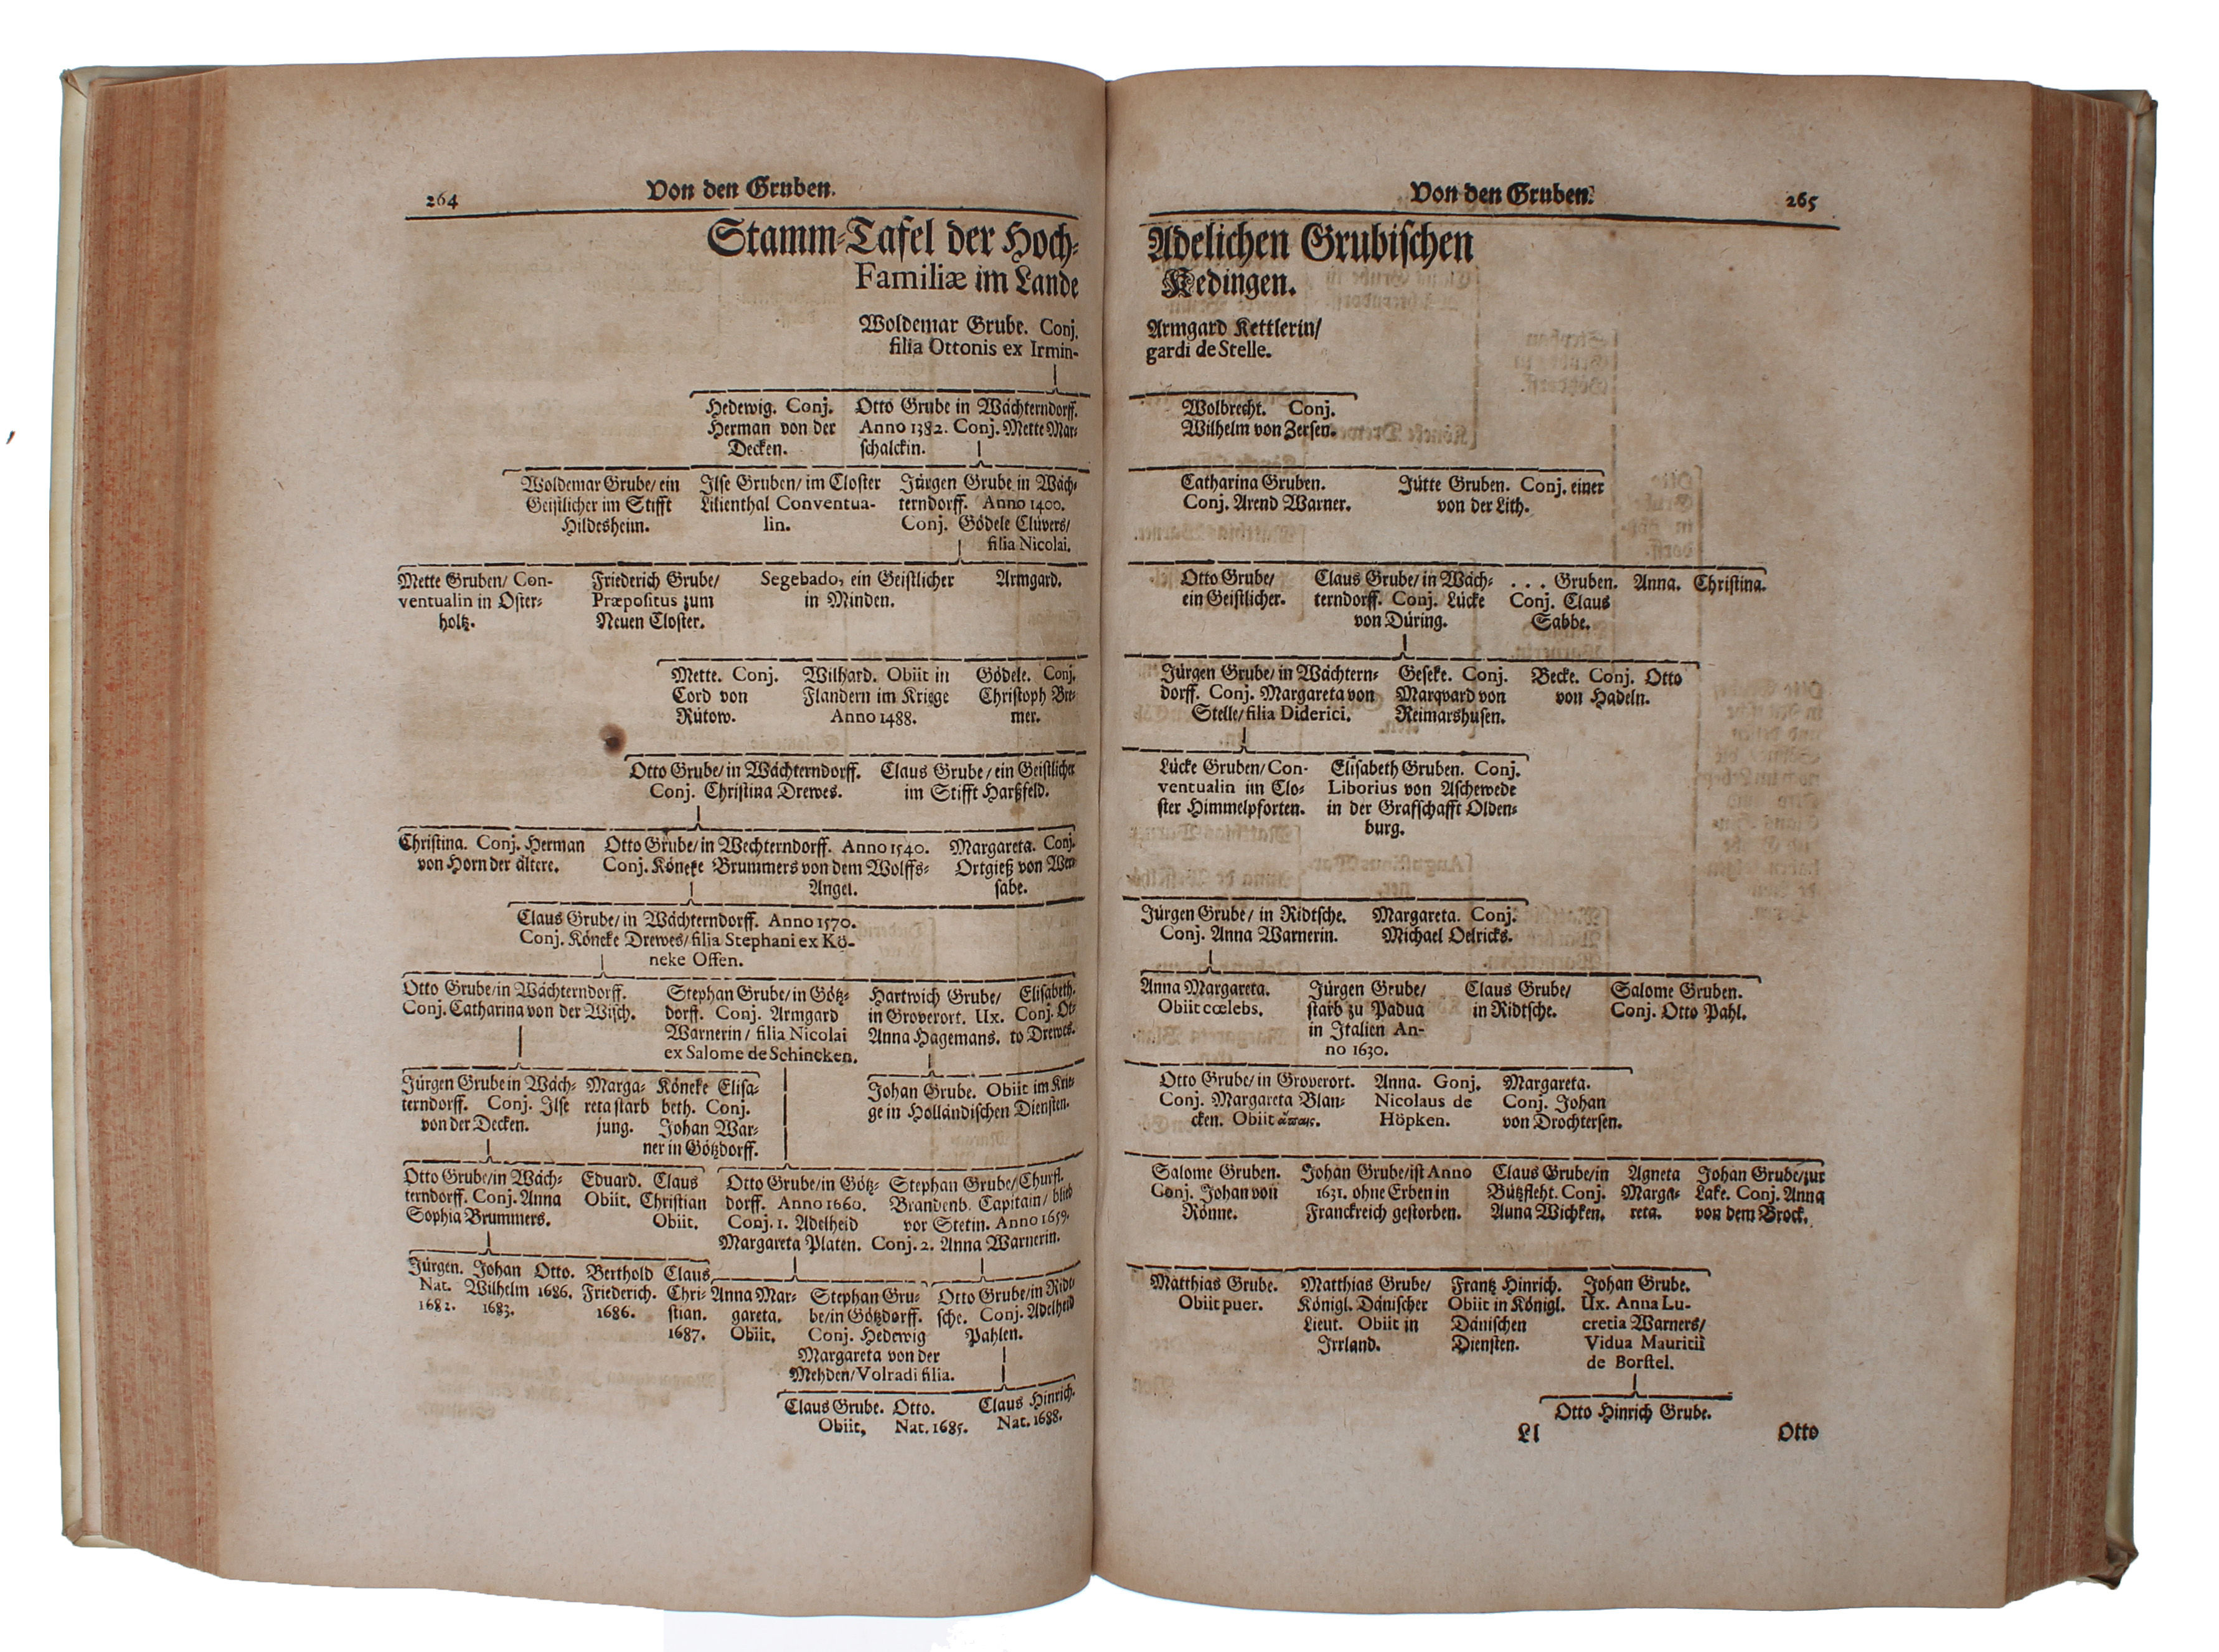 264
Von den Gruben.
Stamm-Tafel der Hoch-
Familiæ im Lande
Woldemar Grube. Conj.
filia Ottonis ex Irmin-
Hedewig. Conj.
Herman von der
Decken.
Otto Grube in Wächterndorff.
Anno 1382. Conj. Mette Mar-
schalckin.
Woldemar Grube/ ein
Geistlicher im Stifft
Hildesheim.
Ilse Gruben/ im Closter
Lilienthal Conventua-
lin.
Jürgen Grube in Wäch-
terndorff. Anno 1400.
Conj. Gödele Clüvers/
filia Nicolai.
Mette Gruben/ Con-
ventualin in Oster-
holtz.
Friederich Grube/
Præpositus zum
Neuen Closter.
Segebado, ein Geistlicher
in Minden.
Armgard.
Mette. Conj.
Cord von
Rütow.
Wilhard. Obiit in
Flandern im Kriege
Anno 1488.
Gödele. Conj.
Christoph Bre-
mer.
Otto Grube/ in Wächterndorff.
Conj. Christina Drewes.
Claus Grube/ ein Geistlicher
im Stifft Harßfeld.
Christina. Conj. Herman
von Horn der ältere.
Otto Grube/ in Wechterndorff. Anno 1540.
Conj. Köneke Brummers von dem Wolffs-
Angel.
Margareta. Conj.
Ortgieß von Wer-
sabe.
Claus Grube/ in Wächterndorff. Anno 1570.
Conj. Köncke Drewes/ filia Stephani ex Kö-
neke Offen.
Otto Grube/in Wächterndorff.
Conj. Catharina von der Wisch.
Stephan Grube/ in Götz-
dorff. Conj. Armgard
Warnerin/ filia Nicolai
ex Salome de Schincken.
Hartwich Grube/
in Groverort. Ux.
Anna Hagemans.
Elisabeth.
Conj. Ot-
to Drewes.
Jürgen Grube in Wäch-
terndorff. Conj. Ilse
von der Decken.
Marga-
reta starb
jung.
Köncke Elisa-
beth. Conj.
Johan War-
ner in Götzdorff.
Johan Grube. Obiit im Krie-
ge in Holländischen Diensten.
Otto Grube/in Wäch-
terndorff. Conj. Anna
Sophia Brummers.
Eduard.
Obiit.
Claus
Christian
Obiit.
Otto Grube/in Götz-
dorff. Anno 1660.
Conj. 1. Adelheid
Margareta Platen. Conj. 2. Anna Warnerin.
Stephan Grube/ Churfl.
Brandenb. Capitain/ blieb
vor Stetin. Anno 1659.
Jürgen.
Nat.
1682.
Johan
Wilhelm
1683.
Otto.
1686.
Berthold
Friederich.
1686.
Claus
Chri-
stian.
1687.
Anna Mar-
gareta.
Obiit.
Stephan Gru-
be/in Götzdorff.
Conj. Hedewig
Margareta von der
Mehden/ Volradi filia.
Otto Grube/in Ridt-
sche. Conj. Adelheid
Pahlen.
Claus Grube.
Obiit,
Otto.
Nat. 1685.
Claus Hinrich.
Nat. 1688.
Von den Gruben.
265
Adelichen Grubischen
Kedingen.
Armgard Kettlerin/
gardi de Stelle.
Wolbrecht. Conj.
Wilhelm von Zersen.
Catharina Gruben.
Conj. Arend Warner.
Jütte Gruben. Conj. einer
von der Lith.
Otto Grube/
ein Geistlicher.
Claus Grube/ in Wäch-
terndorff. Conj. Lücke
von Düring.
. . . Gruben.
Conj. Claus
Sabbe.
Anna.
Christina.
Jürgen Grube/ in Wächtern-
dorff. Conj. Margareta von
Stelle/ filia Diderici.
Geseke. Conj.
Marqvard von
Reimarshusen.
Becke. Conj. Otto
von Hadeln.
Lücke Gruben/ Con-
ventualin im Clo-
ster Himmelpforten.
Elisabeth Gruben. Conj.
Liborius von Aschewede
in der Grafschafft Olden-
burg.
Jürgen Grube/ in Ridtsche.
Conj. Anna Warnerin.
Margareta. Conj.
Michael Oelricks.
Anna Margareta.
Obiit cœlebs.
Jürgen Grube/
starb zu Padua
in Italien An-
no 1630.
Claus Grube/
in Ridtsche.
Salome Gruben.
Conj. Otto Pahl.
Otto Grube/ in Groverort.
Conj. Margareta Blan-
cken. Obiit ἄπαις.
Anna. Gonj.
Nicolaus de
Höpken.
Margareta.
Conj. Johan
von Drochtersen.
Salome Gruben.
Conj. Johan von
Rönne.
Johan Grube/ist Anno
1631. ohne Erben in
Franckreich gestorben.
Claus Grube/in
Bützfleht. Conj.
Anna Wichken.
Agneta
Marga-
reta.
Johan Grube/zur
Lake. Conj. Anna
von dem Brock.
Matthias Grube.
Obiit puer.
Matthias Grube/
Königl. Dänischer
Lieut. Obiit in
Irrland.
Frantz Hinrich.
Obiit in Königl.
Dänischen
Diensten.
Johan Grube.
Ux. Anna Lu-
cretia Warners/
Vidua Mauritii
de Borstel.
Otto Hinrich Grube.
Ll
Otto